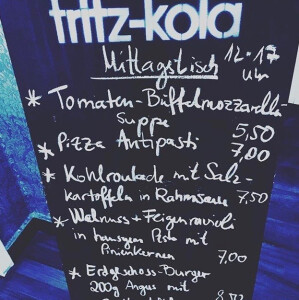 fritz-kola
Mittagstisch 12-17
Uhr
* Tomaten-Büffelmozzarella
Suppe 5,50
* Pizza Antipasti 7,00
* Kohlroulade mit Salz-
kartoffeln in Rahmsauce 7,50
* Walnuss + Feigenravioli
in hausgem. Pesto mit
Pinienkernen 7,00
* Erdgeschoss-Burger
200g Angus mit